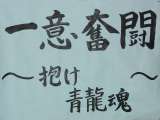 一意奮闘
～抱け
青龍魂～